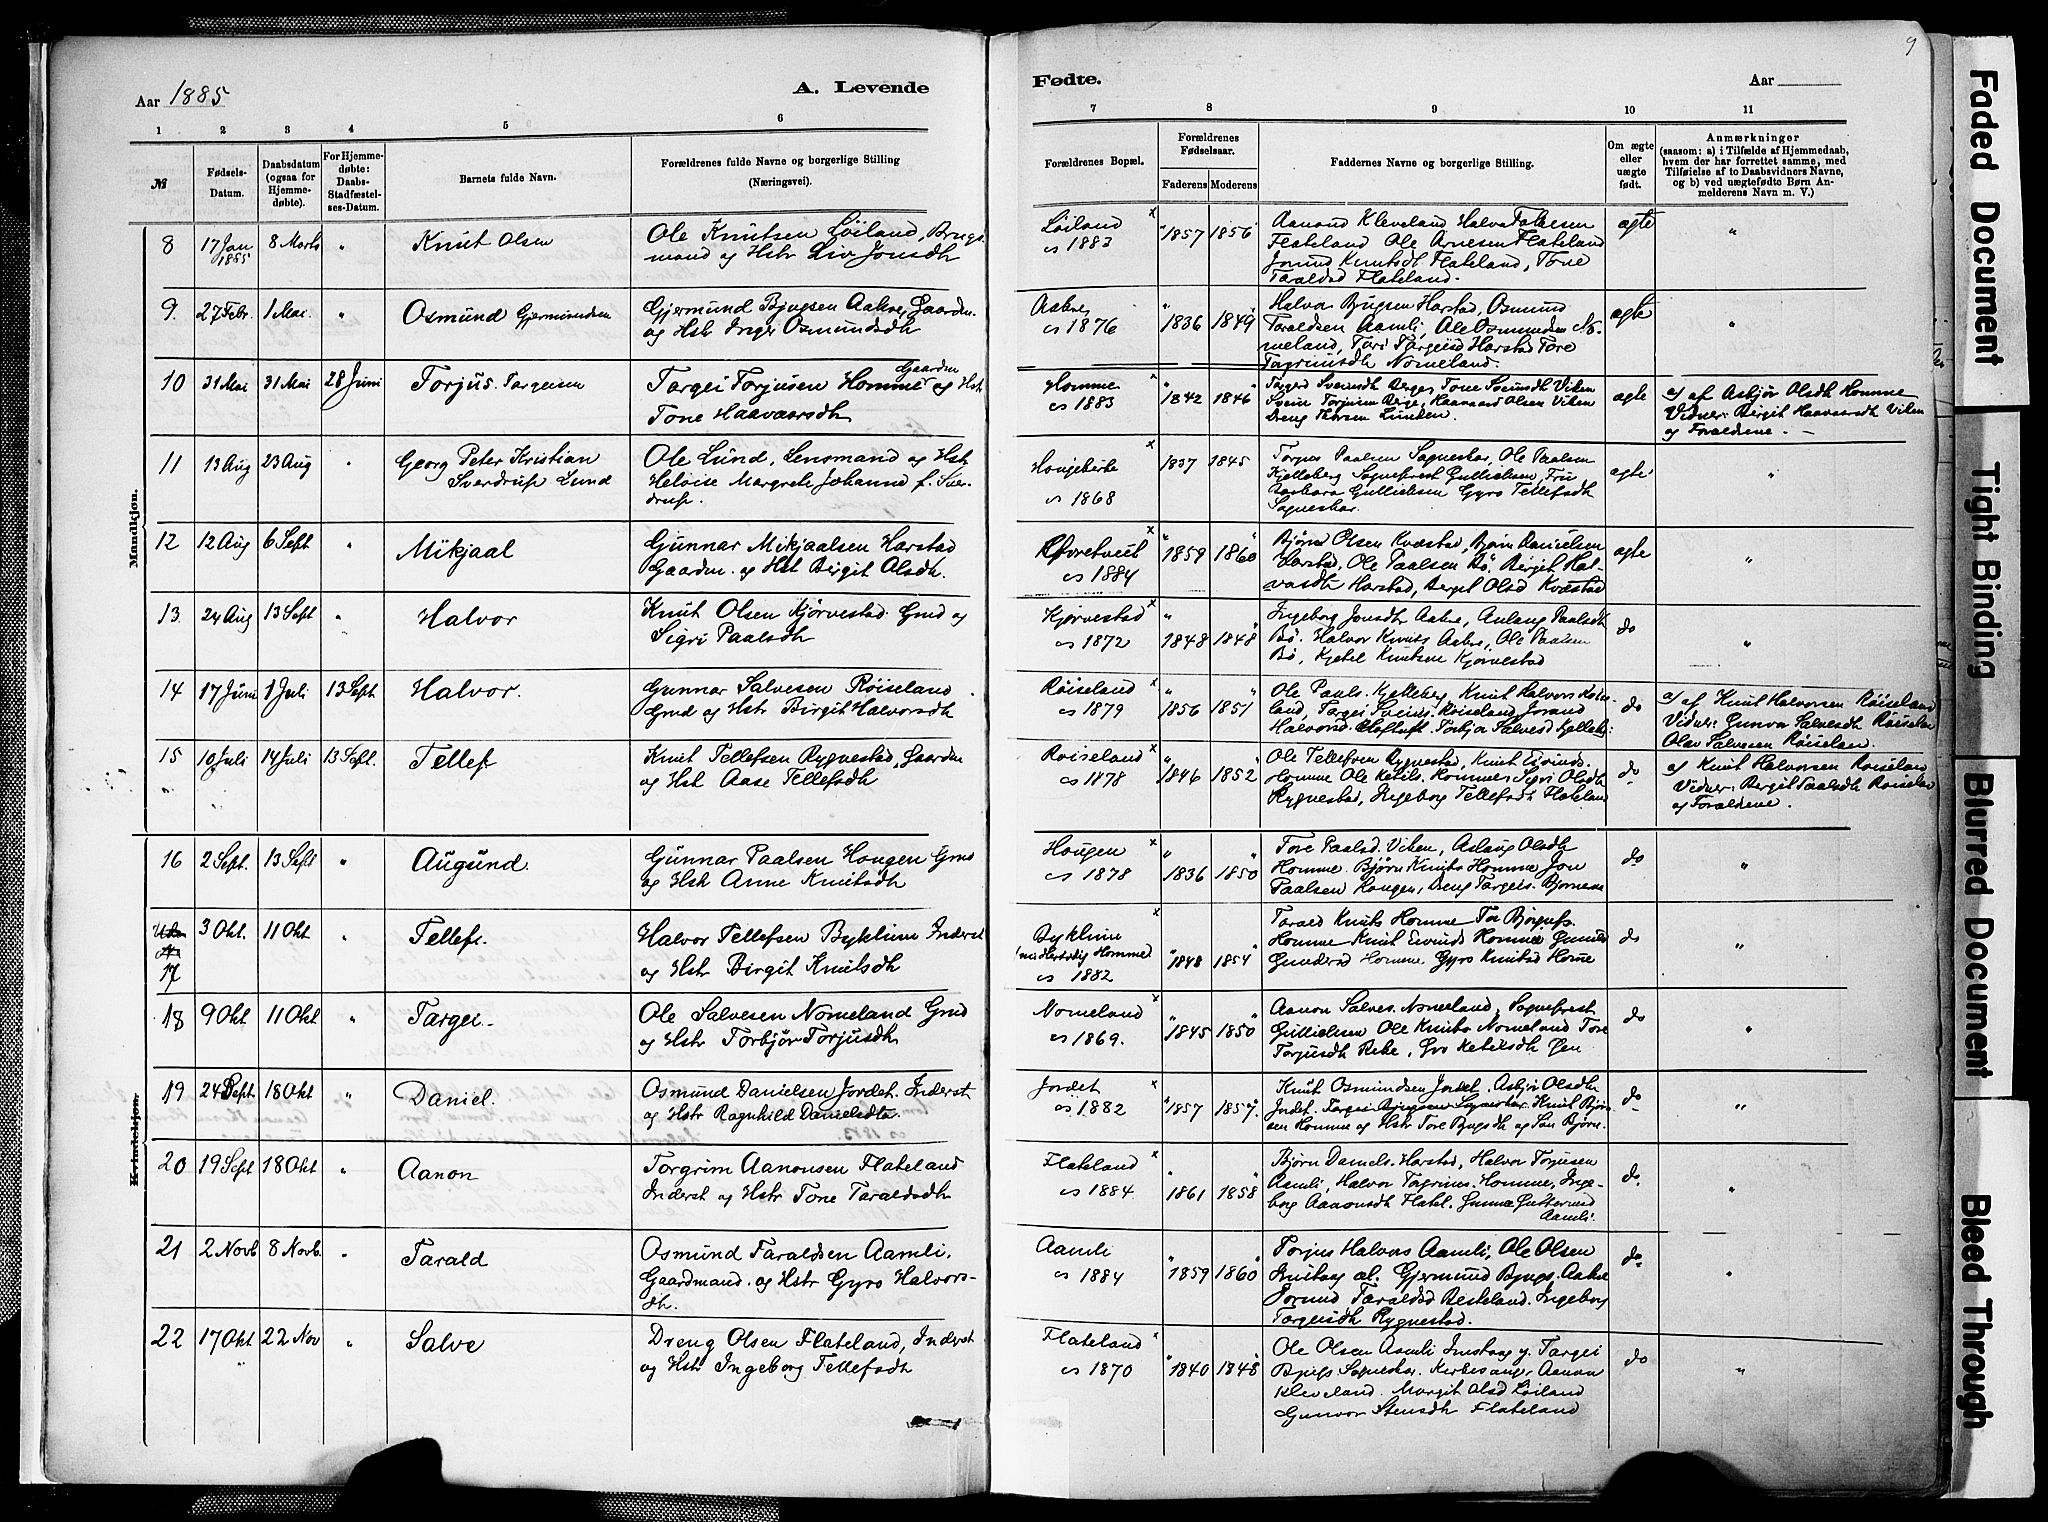 Aar 1885
A. Levende
Fødte.
Aar
9
1 2 3 4 5 6 7 8 9 10 11
№
Fødsels-Datum.
Daabsdatum (ogsaa for Hjemmedøbte).
For Hjemmedøbte: Daabs-Stadfæstelses-Datum.
Barnets fulde Navn.
Forældrenes fulde Navne og borgerlige Stilling (Næringsvei).
Forældrenes Bopæl.
Forældrenes Fødselsaar.
Faderens Moderens
Faddernes Navne og borgerlige Stilling.
Om ægte eller uægte født.
Anmærkninger
(saasom: a) i Tilfælde af Hjemmedaab,
hvem der har forrettet samme, med
Tilføielse af to Daabsvidners Navne,
og b) ved uægtefødte Børn An-
melderens Navn m. V.)
Mandkjøn.
8 17 Jan 1885 8 Marts " Knut Olsen
Ole Knutsen Løiland, Brugs
mand og Hstr Liv Jonsdh
Løiland
1883
1857 1856
Aanond Kleveland Halvor
Flateland Ole Arnesen Flateland
Jorund Knutsdt Flateland, Tone
Taraldsd Flateland.
ægte "
9. 27 Febr. 1 Mai. " Osmund Gjermundsen
Gjermund Bjugsen Aakre, Gaardm.
og Hstr Inger Osmundsdh
Aakre,
1876
1836 1849
Halvor Bjugsen Harstad, Osmund
Taraldsen Aamli, Ole Osmundsen No-
meland, Tori Targeisd Harstad Tore
Torgrimsdh Nomeland.
ægte "
10 31 Mai 31 Mai 28 Juni Torjus Targeisen
Targei Torjusen Homme Gaardm og Hst
Tone Haavarsdh
Homme
1883
1842 1846
Targerd Sveinsdh Berge, Tone Sveinsdh Viken
Svein Torjusen Berge, Haavaard Olsen Viken
Dreng Thorsen Lunden.
ægte
a) af Asbjør Olsdh Homme
Vidner: Bergit Haavarsdh Viken
og Forældrene.
11 13 Aug 23 Aug " Georg Peter Kristian
Sverdrup Lund
Ole Lund, Lensmand og Hst
Helvise Margrete Johanne f. Sver-
drup.
1868
1837 1845
Torjus Paalsen Sagneskar, Ole Paalsen
Kjelleberg Sogneprest Gullielsen, Fru
Barbara Gullielsen Gyro Tellefsdh
Sagneskar.
ægte "
12 12 Aug 6 Sept " Mikjaal
Gunnar Mikjaalsen Harstad
Gaardm. og Hst Birgit Olsdh.
1884
1859 1860
Bjørn Olsen Kvæstad, Bjørn Danielsen
Harstad, Ole Paalsen Bø, Birgit Hal-
vorsdh Harstad, Berget Olsd Kvæstad
ægte "
13. 24 Aug 13 Sept " Halvor
Knut Olsen Kjørvestad. Grd og
Sigri Paalsdh
Kjørvestad
1872
1848 1848
Ingeborg Jonsdh Aakre, Aslaug Paalsdh
Bø. Halvor Knuts Aakre, Ole Paalsen
Bø, Kjetel Knutsen Kjørvestad
do "
14 17 Juni 1 Juli 13 Sept Halvor.
Gunnar Salvesen Røiseland
Grd og Hstr Birgit Halvorsdh
Røiseland
1879
1856 1851
Ole Pauls. Kjelleberg, Knut Halvors Røise-
land, Targei Sveins. Røiseland Jorand
Halvorsd. Torbjør Salvesd Kjelleb:
do
a) af Knut Halvorsen Røiseland
Vidner: Gunvor Salvesdh Røiselan
Olav Salvesen Røiselan.
15 10 Juli 14 Juli 13 Sept. Tellef
Knut Tellefsen Rygnestad, Gaardm
og Hst Aase Tellefsdh
Røiseland
1878
1846 1852
Ole Tellefsen Rygnestad, Knut Eivinds.
Homme Ole Ketils. Homme, Sigri Olsdh
Rygnestad, Ingeborg Tellefsdh Flateland
do
a) Knut Halvorsen Roiseland
Vidner: Bergit Paalsdh Roiselan
og Forældrene.
Kvindekjøn.
16 2 Sept. 13 Sept " Augund.
Gunnar Paalsen Hougen Grd
og Hstr Anne Knutsdh
Hougen
1878
1836 1850
Tore Paalsd. Viken, Aslaug Olsdh
Homme. Bjørn Knuts Homme Jon
Paalsen Hougen, Dreng Targeis. Bjørnene
do "
17 3 Okt. 11 Okt " Tellef.
Halvor Tellefsen Byklum Inderst
og Hstr Birgit Knutsdh
1882
1848 1854
Tarald Knuts Homme Tor Bjørgufs.
Homme Knut Eivinds Homme Gunhild
Gundersd Homme, Gyro Knutsd Home
do "
18 9 Okt 11 Okt " Targei
Ole Salvesen Nomeland Grd
og Hstr Torbjør Torjusdh
Nomeland
1869.
1845 1850
Aanon Salves. Nomeland, Sogneprest
Gullielsen Ole Knuts Nomeland Tore
Torjusdh Rike, Gro Ketilsdh
do "
19 24 Sept 18 Okt " Daniel.
Osmund Danielsen Jordet. Inderst
og Hstr Ragnhild Danielsdtr.
Jordet
1882
1857 1857.
Knut Osmundsen Jordet. Asbjør Olsdh
Jordet. Targei Bjugsen Sagneskar, Knut Bjørn-
sen Homme og Hstr Tore Bjugsdh og Søn Bjørn.
do "
20 19 Sept 18 Okt " Aanon
Torgrim Aanonsen Flateland
Inderst og Hstr Tone Taraldsdh
Flateland
1884.
1861 1858
Bjørn Daniels. Harstad, Halvor Torjusen
Aamli, Halvor Torgrims. Homme, Inge-
borg Aanonsdh Flatel. Gunne Guttormsd
Aamli.
do. "
21 2 Novb 8 Novb. " Tarald
Osmund Taraldsen Aamli.
Gaardmand. og Hstr Gyro Halvors-
dh.
Aamli
1884
1859 1860
Torjus Halvors Aamli, Ole Olsen
Gjermund Bjugs. Aakre
Jorund Taraldsd Besteland. Ingeborg
Torgeisdh Rygnestad.
do "
22 17 Okt 22 Nov " Salve
Dreng Olsen Flateland, Inderst
og Hst Ingeborg Tellefsdh
Flateland
1870
1840 1848
Ole Olsen Aamli Targei
Bjugs Sagneskar. Aanon
Kleveland. Margit Olsd Løiland
Gunvor Steinsdh Flateland
do "
Faded Document
Tight Binding
Blurred Document
Bleed Through